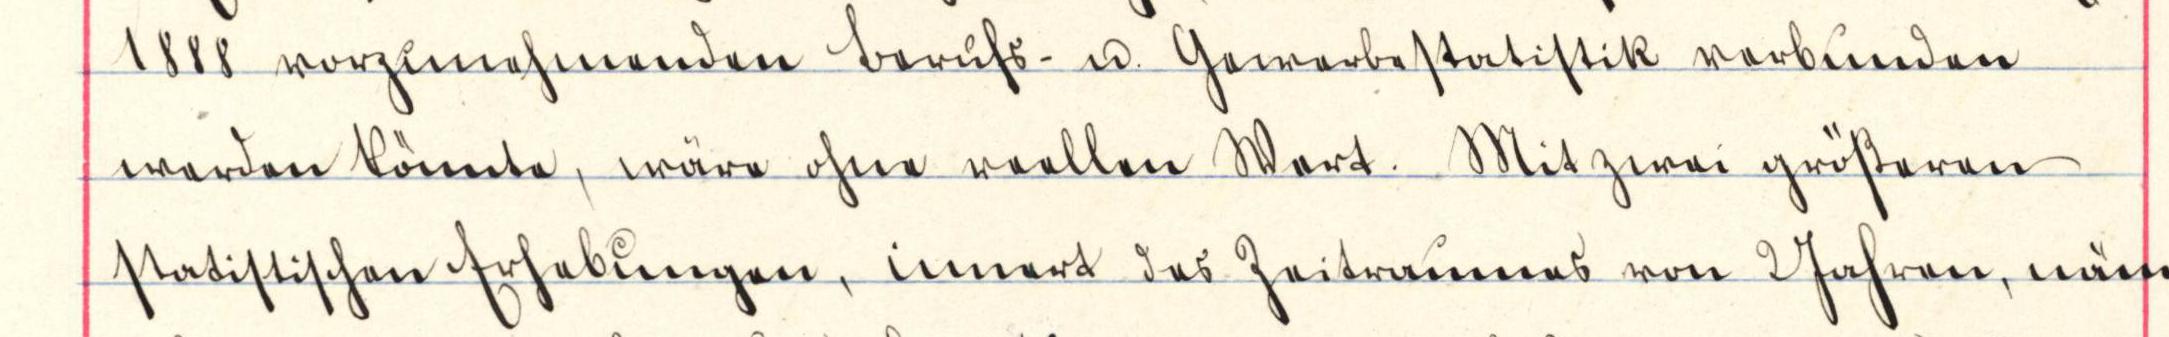 1888 vorzunehmenden Berufs- u. Gewerbestatistik verbunden
werden könnte, wäre ohne reellen Wert. Mit zwei größeren
statistischen Erhebungen, innert des Zeitraumes von 2 Jahren, näm